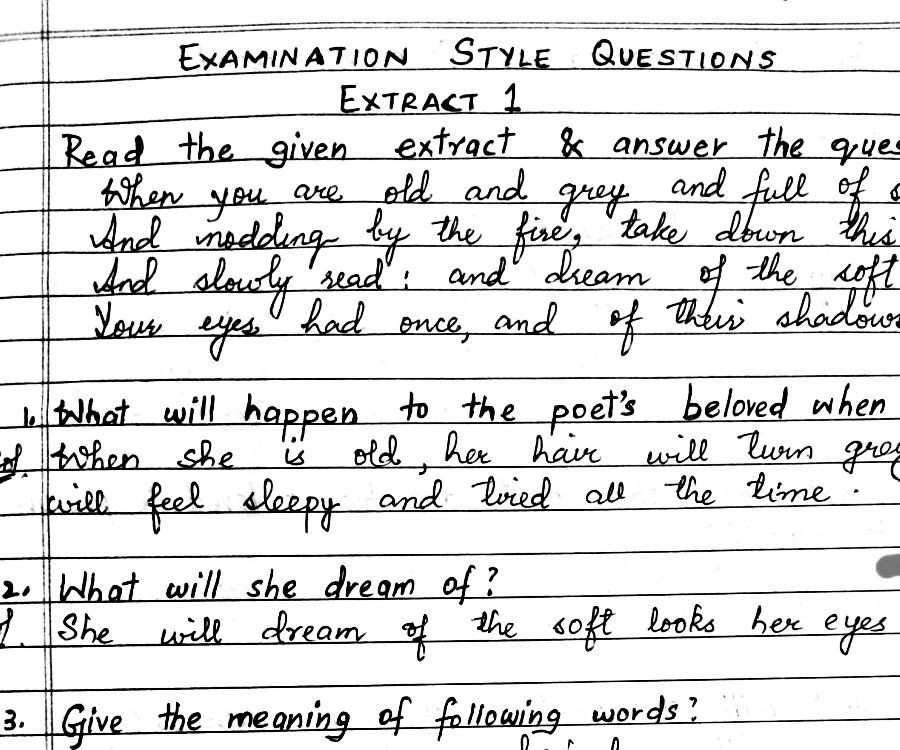 EXAMINATION STYLE QUESTIONS
EXTRACT 1
Read the given extract & answer the ques
When you are old and grey and full of s
And nodding by the fire, take down this
And slowly read : and dream of the soft
Your eyes had once, and of their shadows
1. What will happen to the poet's beloved when
When she is old, her hair will turn grey
will feel sleepy and tired all the time.
2. What will she dream of?
She will dream of the soft looks her eyes
3. Give the meaning of following words?